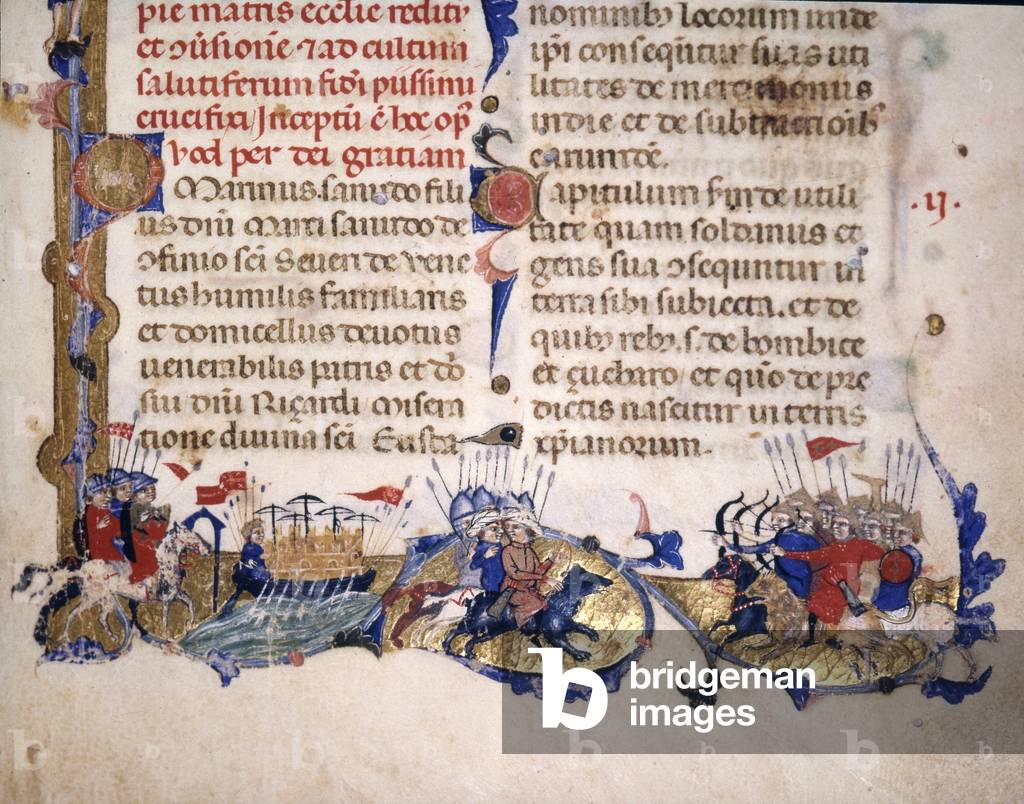 pie matris ecclie reditū
et ꝯūsionē ⁊ ad cultum
salutiferum fidi pussimi
crucifixi Inceptū ē hoc opꝰ
ꝙd per dei gratiam
Marinus sanudo fili
us dnī Marci sanudo de
ꝯfinio scī Seueri de vene
tus humilis familiaris
et domicellus deuotus
uenerabilis patris et do
dnī Ricardi misera
tione diuina scī Eusta
nominibꝫ locorum unde
ipi conseqūtur suas uti
litates de
indie et de subtractioībꝰ
earunde.
Capitulum de utili
tate quam soldanus et
gens sua ꝯsequntur in
terra sibi subiecta. et de
quibꝫ rebꝫ .s. de bombice
et çucharo et quō de pre
dictis nascitur in terris
xpianorum.
.ij.
bridgeman
images